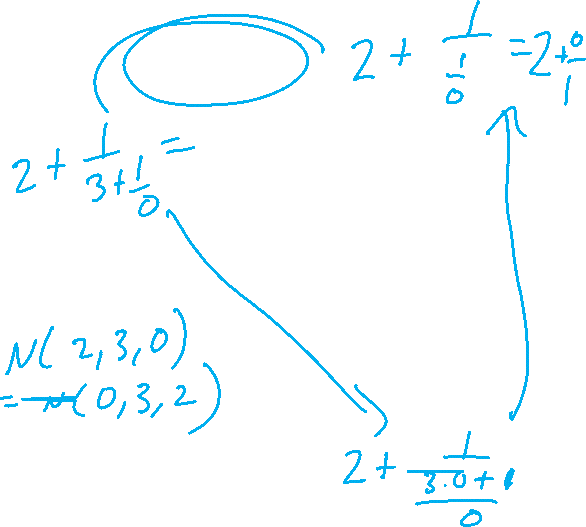 2 + 1/(1/0) = 2 + 0/1
2 + 1/(3 + 1/0) =
N(2,3,0)
= N(0,3,2)
2 + 1/((3·0+1)/0)